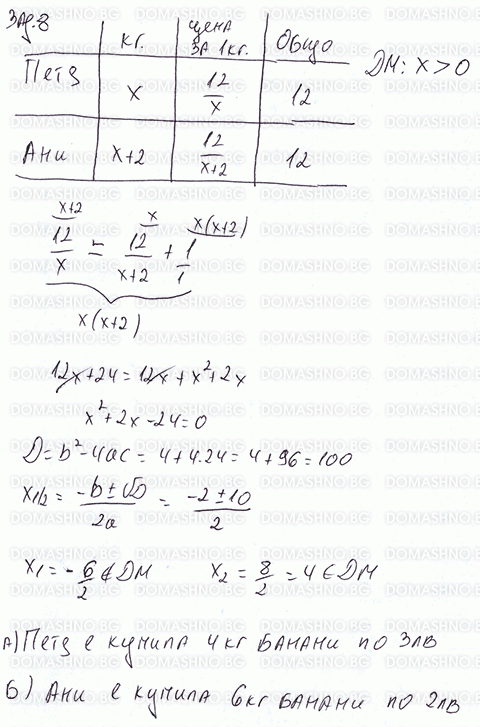 Зад. 8
кг. | цена за 1кг. | Общо
ДМ: x > 0
Петя | x | 12/x | 12
Ани | x+2 | 12/(x+2) | 12
x+2 x x(x+2)
12/x = 12/(x+2) + 1/1
x(x+2)
12x+24 = 12x + x²+2x
x²+2x-24=0
D=b²-4ac = 4+4.24=4+96=100
x1/2 = (-b±√D)/2a = (-2±10)/2
x1 = -6/2 ∉ ДМ x2 = 8/2 = 4 ∈ ДМ
А) Петя е купила 4кг банани по 3лв
Б) Ани е купила 6кг банани по 2лв
DOMASHNO.BG